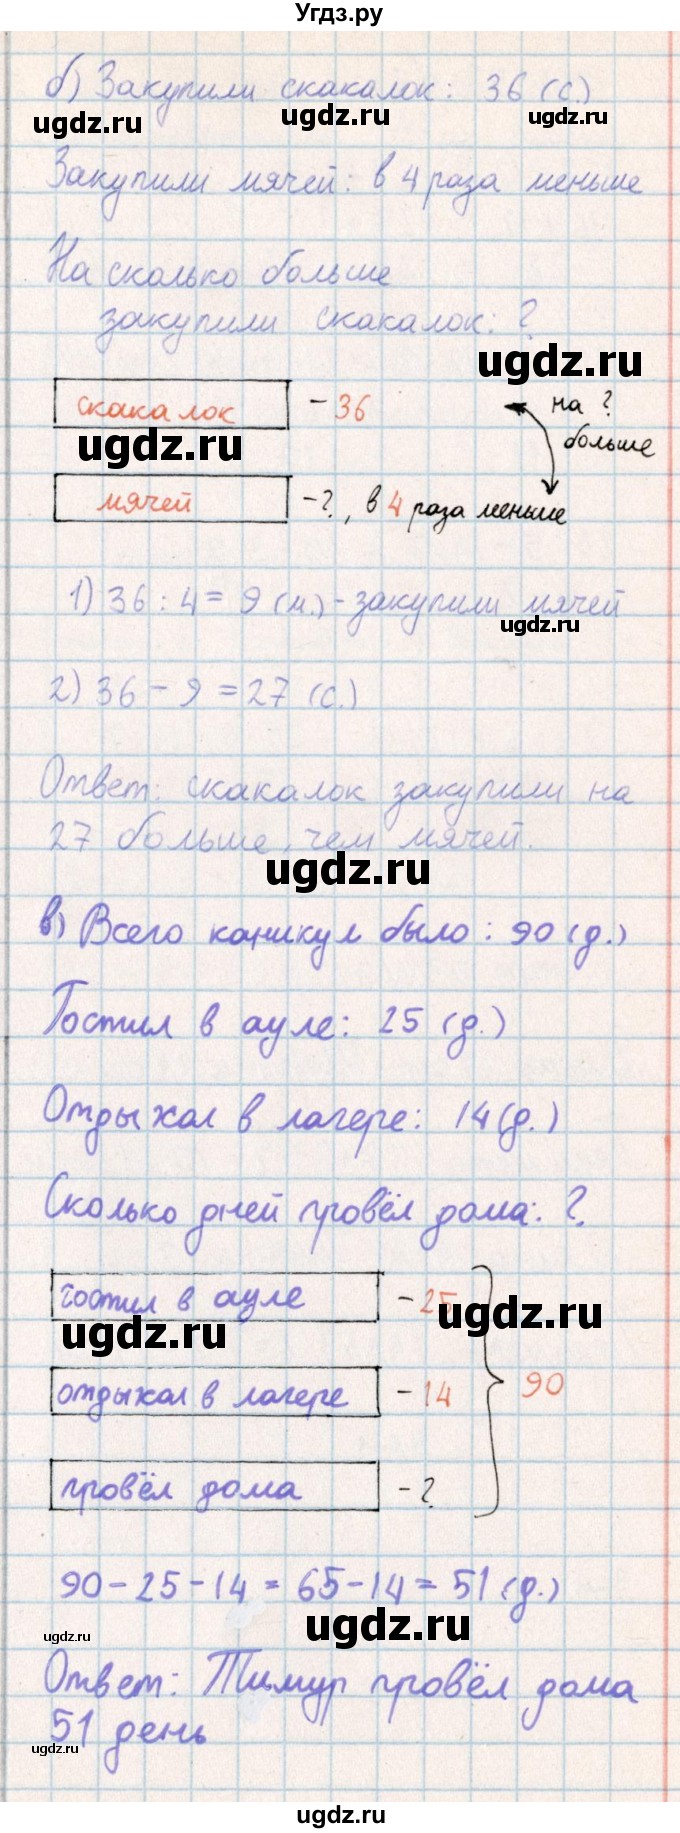 Угдз.ру
б) Закупили скакалок: 36 (с.)
ugdz.ru ugdz.ru ugdz.ru
Закупили мячей: в 4 раза меньше
На сколько больше
закупили скакалок: ?
ugdz.ru
скакалок - 36 на ?
больше
ugdz.ru
мячей -?, в 4 раза меньше
1) 36 : 4 = 9 (м.) - закупили мячей
ugdz.ru
2) 36 - 9 = 27 (с.)
Ответ: скакалок закупили на
27 больше, чем мячей.
ugdz.ru
в) Всего каникул было: 90 (д.)
Гостил в ауле: 25 (д.)
Отдыхал в лагере: 14 (д.)
Сколько дней провёл дома: ?
гостил в ауле - 25
ugdz.ru ugdz.ru
отдыхал в лагере - 14 90
провёл дома - ?
90 - 25 - 14 = 65 - 14 = 51 (д.)
ugdz.ru ugdz.ru
Ответ: Тимур провёл дома
51 день
ugdz.ru
ugdz.ru